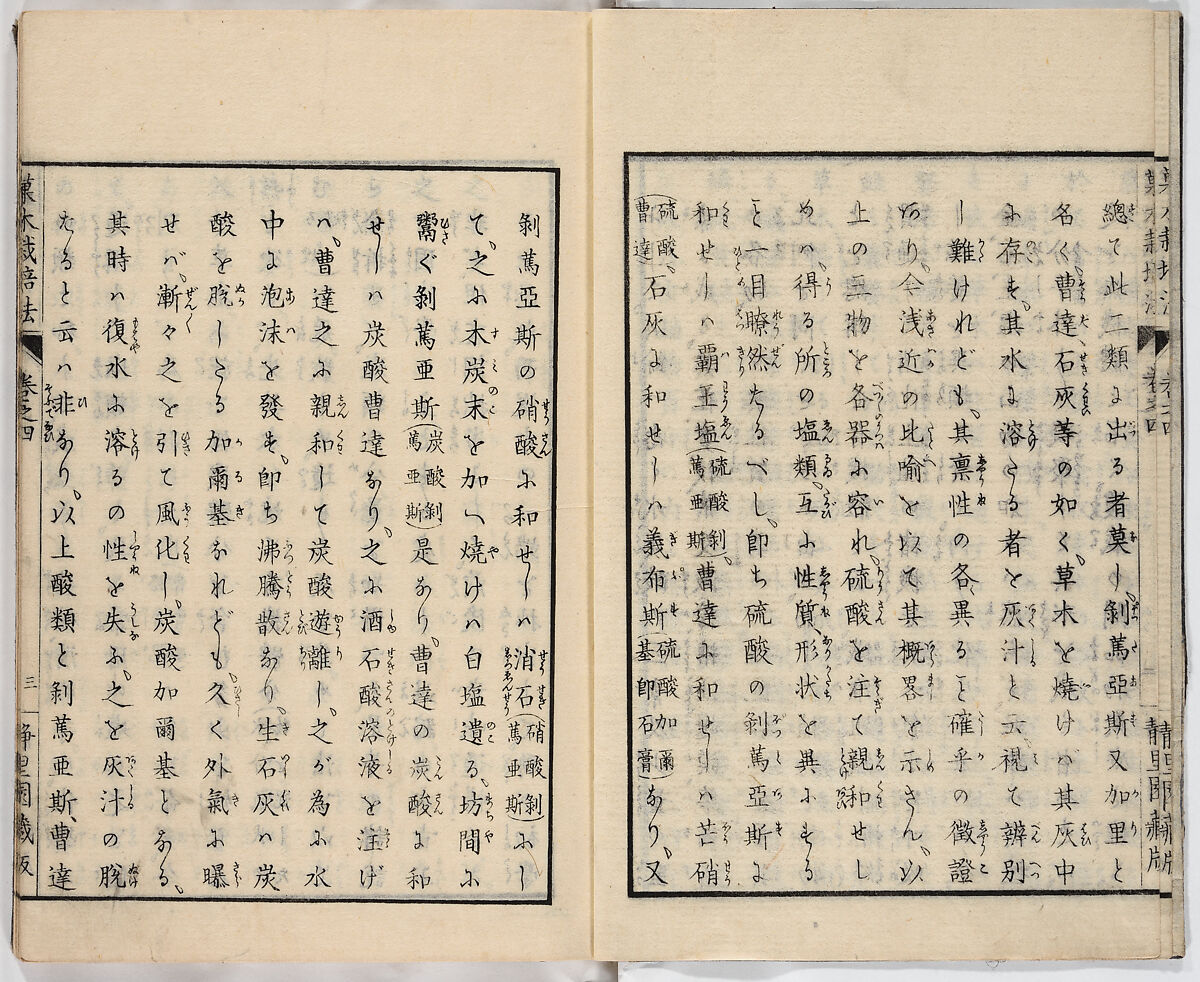 菓木栽培法 卷之四 靜里園藏版
總て此二類に出る者莫し、剝篤亞斯又加里と
名く、曹達、石灰等の如く、草木を燒けバ其灰中
に存す、其水に溶たる者を灰汁と云、視て辨別
し難けれども、其稟性の各異ること確乎の徴證
あり、今浅近の比喻を以て其概畧を示さん、以
上の三物を各器に容れ、硫酸を注て親和せし
めハ、得る所の塩類、互に性質、形状を異にする
こと一目瞭然たるべし、即ち硫酸の剝篤亞斯に
和せしハ覇王塩(硫酸剝篤亞斯)、曹達に和せしハ芒硝
(硫酸曹達)、石灰に和せしハ義布斯(硫酸加爾基即石膏)なり、又
剝篤亞斯の硝酸に和せしハ消石(硝酸剝篤亞斯)にし
て、之に木炭末を加へ燒けハ白塩遺る、坊間に
鬻ぐ剝篤亜斯(炭酸剝篤亜斯)是なり、曹達の炭酸に和
せしハ炭酸曹達なり、之に酒石酸溶液を注げ
ハ、曹達之に親和して炭酸遊離し、之が為に水
中に泡沫を發す、即ち沸騰散なり、生石灰ハ炭
酸を脫したる加爾基なれども久く外氣に曝
せバ、漸々之を引て風化し、炭酸加爾基となる、
其時ハ復水に溶るの性を失ふ、之を灰汁の脫
たると云ハ非なり、以上酸類と剝篤亜斯、曹達
菓木栽培法 卷之四 三 靜里園藏版